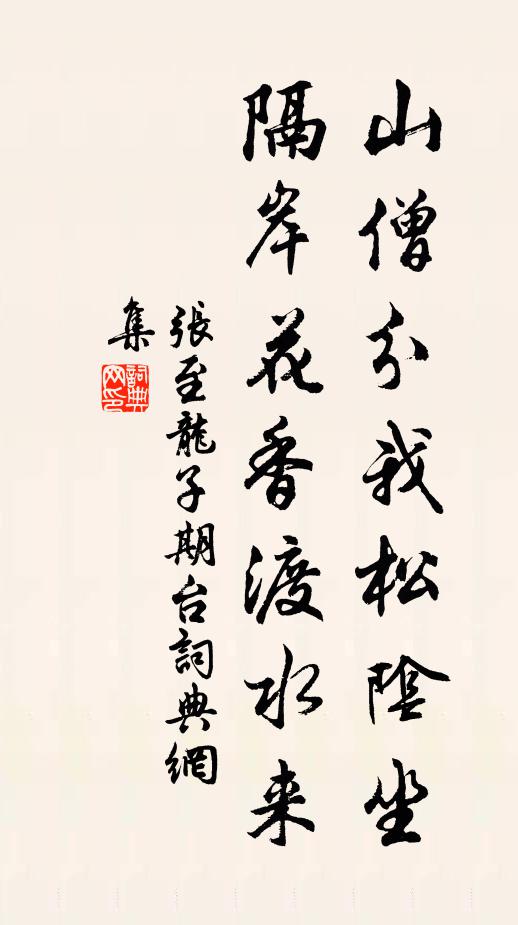 山僧分我松陰坐
隔岸花香渡水来
張至龍子期台詞典網
集
詞典
网印